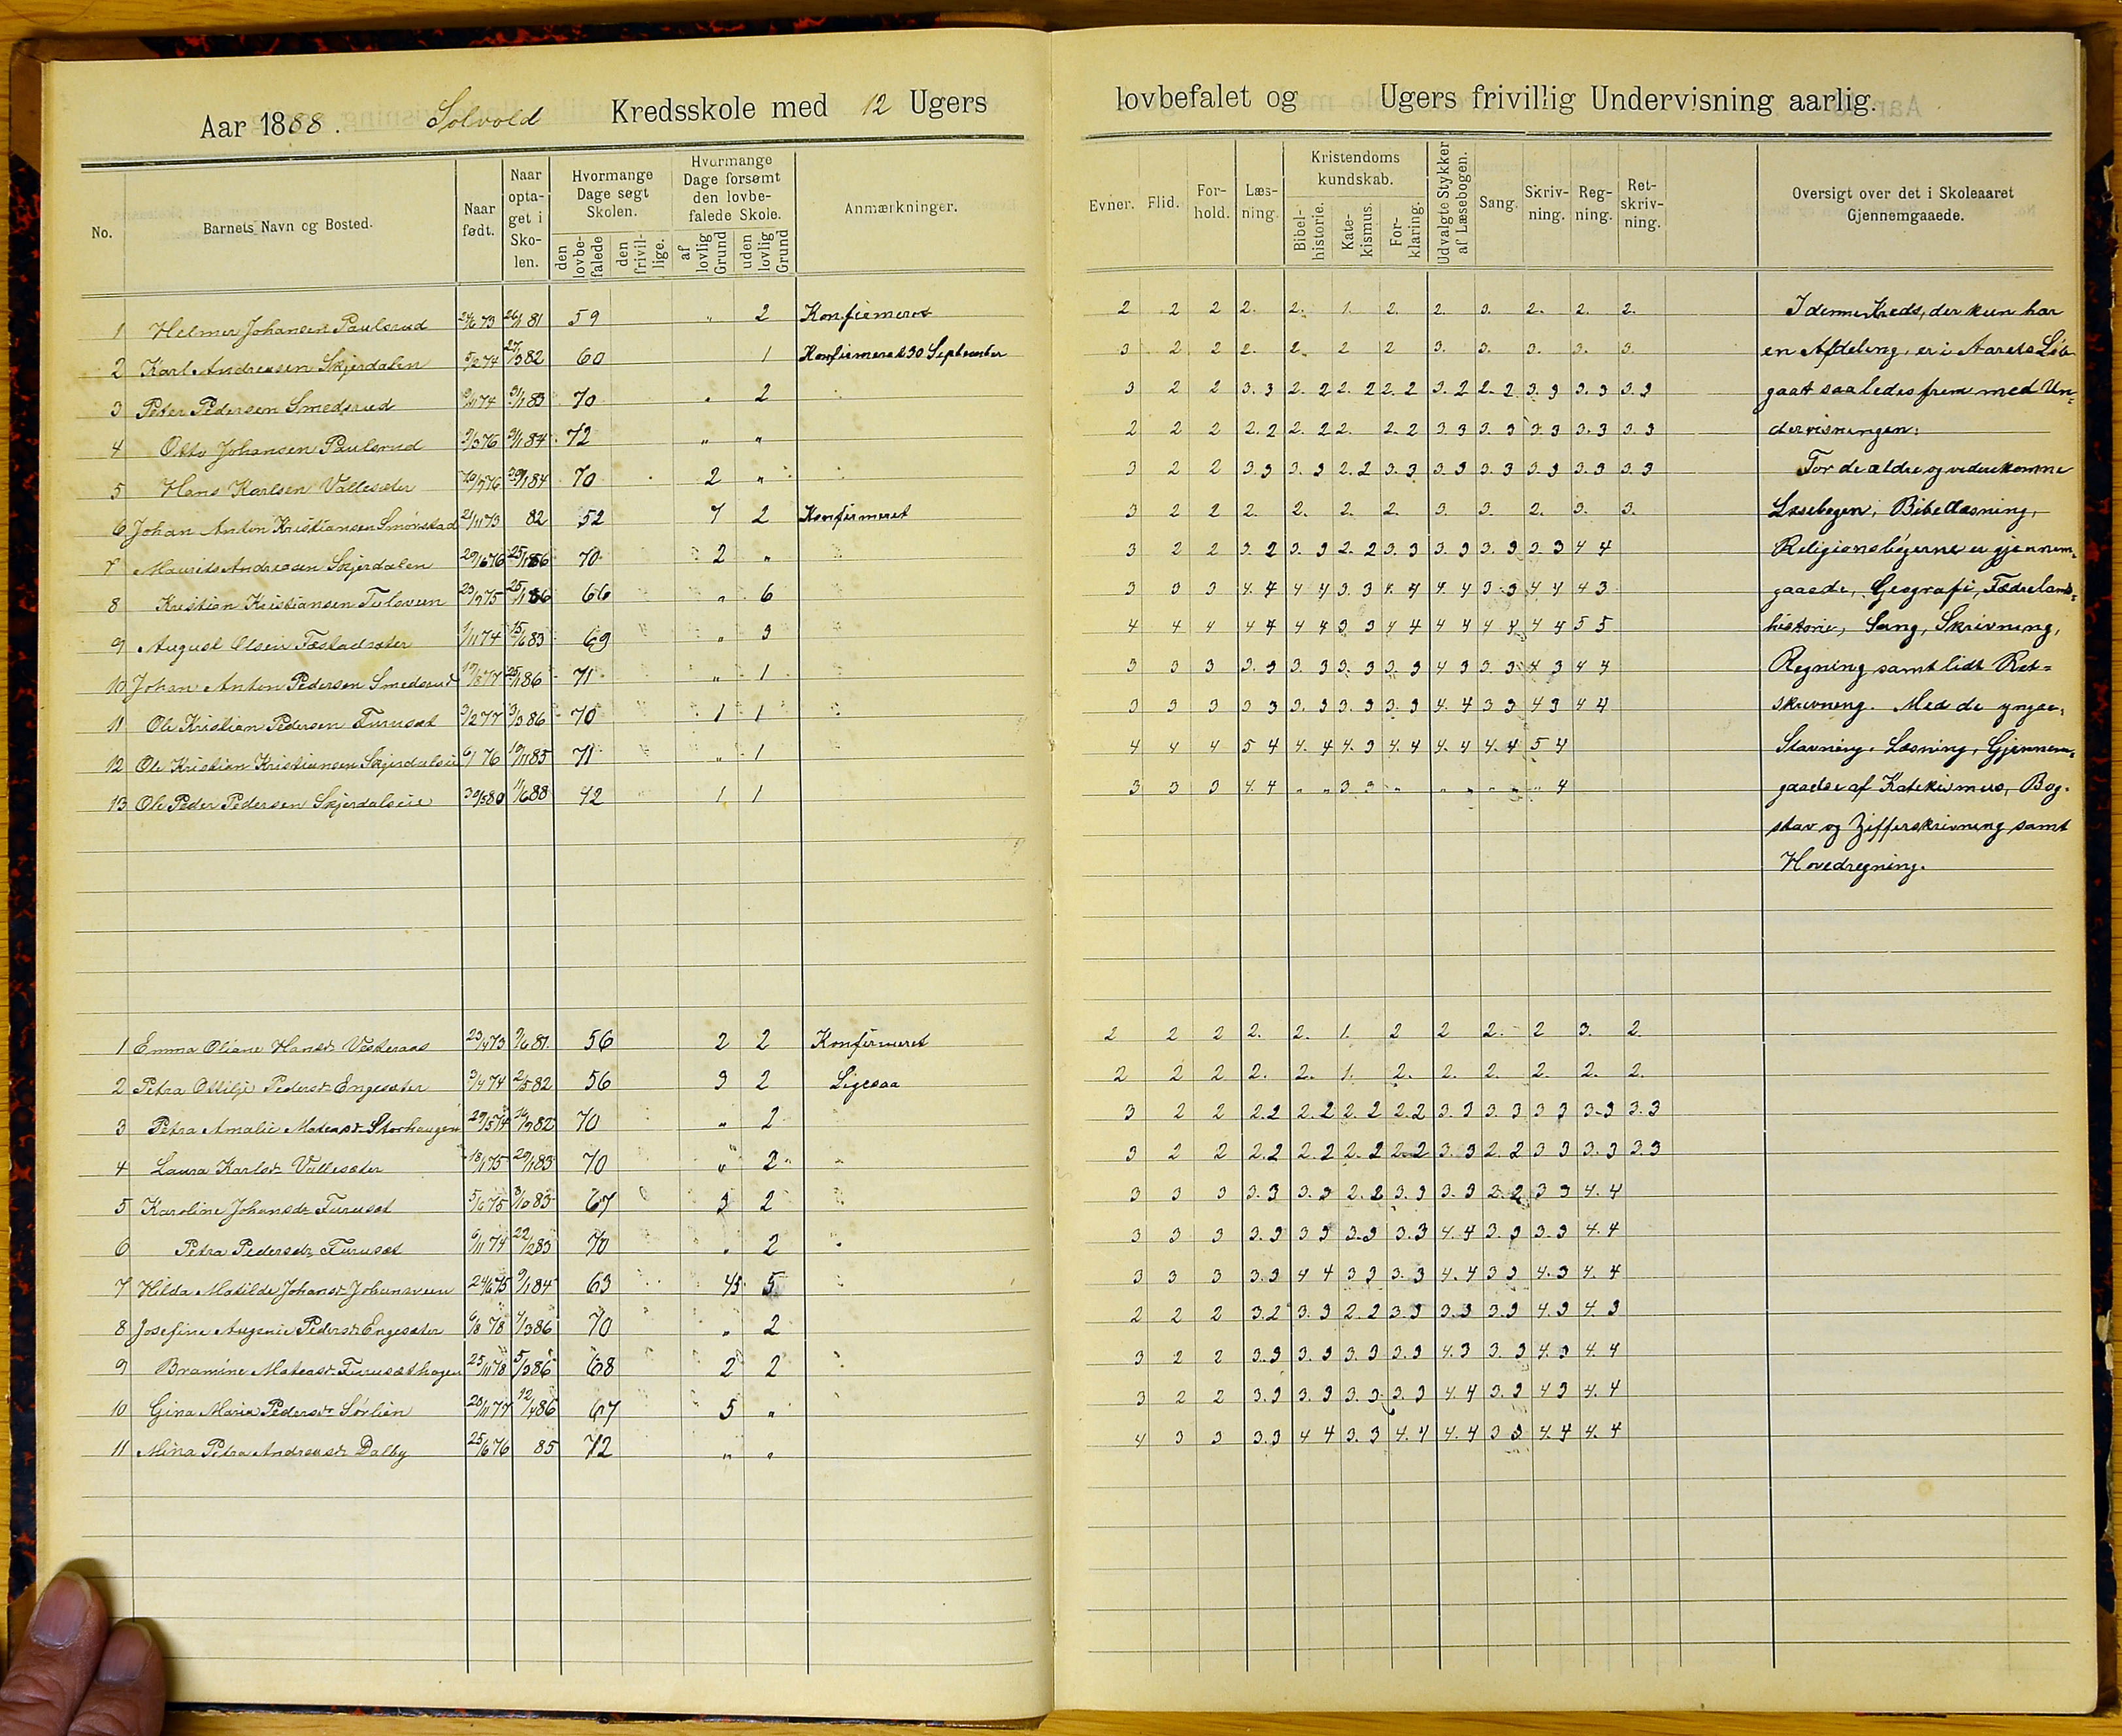 Aar 1888. Solvold Kredsskole med 12 Ugers lovbefalet og Ugers frivillig Undervisning aarlig.
No. | Barnets Navn og Bosted. | Naar født. | Naar optaget i Skolen. | Hvormange Dage søgt Skolen. den lovbefalede | den frivillige. | Hvormange Dage forsømt den lovbefalede Skole. af lovlig Grund | uden lovlig Grund | Anmærkninger. | Evner. | Flid. | Forhold. | Læsning. | Kristendomskundskab. Bibelhistorie. | Katekismus. | Forklaring. | Udvalgte Stykker af Læsebogen. | Sang. | Skrivning. | Regning. | Retskrivning. | Oversigt over det i Skoleaaret Gjennemgaaede.
1 Helmer Johansen Paulsrud 59 " 2 Konfirmeret 2 2 2 2. 2. 1. 2. 2. 3. 2. 2. 2. I denne Kreds, der kun har
2 Karl Andreasen Skjerdalen 5/2 74 27/3 82 60 1 Konfirmeret 30 September 3 2 2 2. 2. 2 2 3. 3. 3. 3. 3. en Afdeling, er i Aarets Løb
3 Peder Pedersen Smedsrud 70 " 2 3 2 2 3. 3 2. 2 2. 2 2. 2 3. 2 2. 2 3. 3 3. 3 3. 3 gaaet saaledes frem med Un=
4 Otto Johansen Paulsrud 72 " " 2 2 2 2. 2 2. 2 2. 2. 2 3 3 3. 3 3. 3 3. 3 3. 3 dervisningen:
5 Hans Karlsen Vallesæter 70 2 " 3 2 2 3. 3 3. 3 2. 2 3. 3 3. 3 3. 3 3. 3 3. 3 3. 3 For de ældre og viderekomne
6 Johan Anton Kristiansen Smønstad 21/11 73 82 52 7 2 Konfirmeret 3 2 2 2. 2. 2. 2. 3. 3. 2. 3. 3. Læsebogen, Bibellæsning,
7 Maurits Andreasen Skjerdalen 29/6 76 25/1 86 70 2 " 3 2 2 3. 2 3. 3 2. 2 3. 3 3. 3 3. 3 3. 3 4 4 Religionsbøgerne er gjennem=
8 Kristian Kristiansen 25/1 86 66 " 6 3 3 3 4. 4 4 4 3 3 4. 4 4. 4 3 3 4 4 4 3 gaaede, Geografi, Fædrelands=
9 August Olsen 1/11 74 15/6 83 69 " 3 4 4 4 4 4 4 4 3 3 4 4 4 4 4 4 4 4 5 5 historie, Sang, Skrivning,
10 Johan Anton Pedersen Smedsrud 25/1 86 71 " 1 3 3 3 3. 3 3. 3 3. 3 3. 3 4 3 3. 3 4 3 4 4 Regning samt lidt Ret=
11 Ole Kristian Pedersen Furuset 3/2 77 3/3 86 70 1 1 3 3 3 3 3 3. 3 3. 3 3. 3 4. 4 3 3 4 3 4 4 skrivning. Med de yngre,
12 Ole Kristian Kristiansen 6/1 76 19/11 85 71 " 1 4 4 4 5 4 4. 4 4. 3 4. 4 4. 4 4. 4 5 4 Stavning, Læsning, Gjennem=
13 Ole Peder Pedersen 30/5 80 11/6 88 42 1 1 3 3 3 4. 4 " " 3 3 " " " " " " 4 gaaelse af Katekismus, Bog-
stav og Zifferskrivning samt
Hovedregning.
1 Emma Oliane Hansdr. Vesteraas 23/4 73 9/6 81. 56 2 2 Konfirmeret 2 2 2 2. 2. 1. 2 2 2. 2 3. 2.
2 Petra Ottilje Pedersdr. Engesæter 3/4 74 2/5 82 56 3 2 Ligesaa 2 2 2 2. 2. 1. 2. 2. 2. 2. 2. 2.
3 Petra Amalie Mateasdr. Storhaugen 29/5 74 14/9 82 70 " 2 3 2 2 2.2 2. 2 2. 2 2.2 3. 3 3. 3 3 3 3. 3 3. 3
4 Laura Karlsdr. Vallesæter 18/1 75 29/1 83 70 " 2 3 2 2 2.2 2. 2 2. 2 2. 2 3. 3 2. 2 3 3 3. 3 3. 3
5 Karoline Johansdr. Furuset 5/6 75 67 3 2 3 3 3 3. 3 3. 3 2. 2 3. 3 3. 3 2. 2 3 3 4. 4
6 Petra Pedersdr. Furuset 6/11 74 22/2 83 70 " 2 3 3 3 3. 3 3 3 3. 3 3. 3 4. 4 3. 3 3. 3 4. 4
7 Hilda Matilde Johansdr. 24/6 75 9/1 84 63 5 3 3 3 3. 3 4 4 3 3 3. 3 4. 4 3 3 4. 3 4. 4
8 Josefine Augenie Pedersdr. Engesæter 6/8 78 4/3 86 70 " 2 2 2 2 3. 2 3. 3 2. 2 3. 3 3. 3 3. 3 4. 3 4. 3
9 Bramine Mateasdr. Furusæthagen 25/11 78 5/3 86 68 2 2 3 2 2 3. 3 3. 3 3. 3 3. 3 4. 3 3. 3 4. 3 4. 4
10 Gina Maria Pedersdr. Sørlien 12/4 86 67 5 " 3 2 2 3. 3 3. 3 3. 3 3. 3 4. 4 3. 3 4 3 4. 4
11 Mina Petra Andreasdr. Dalby 25/6 76 85 72 " " 4 3 3 3. 3 4 4 3. 3 4. 4 4. 4 3 3 4. 4 4. 4